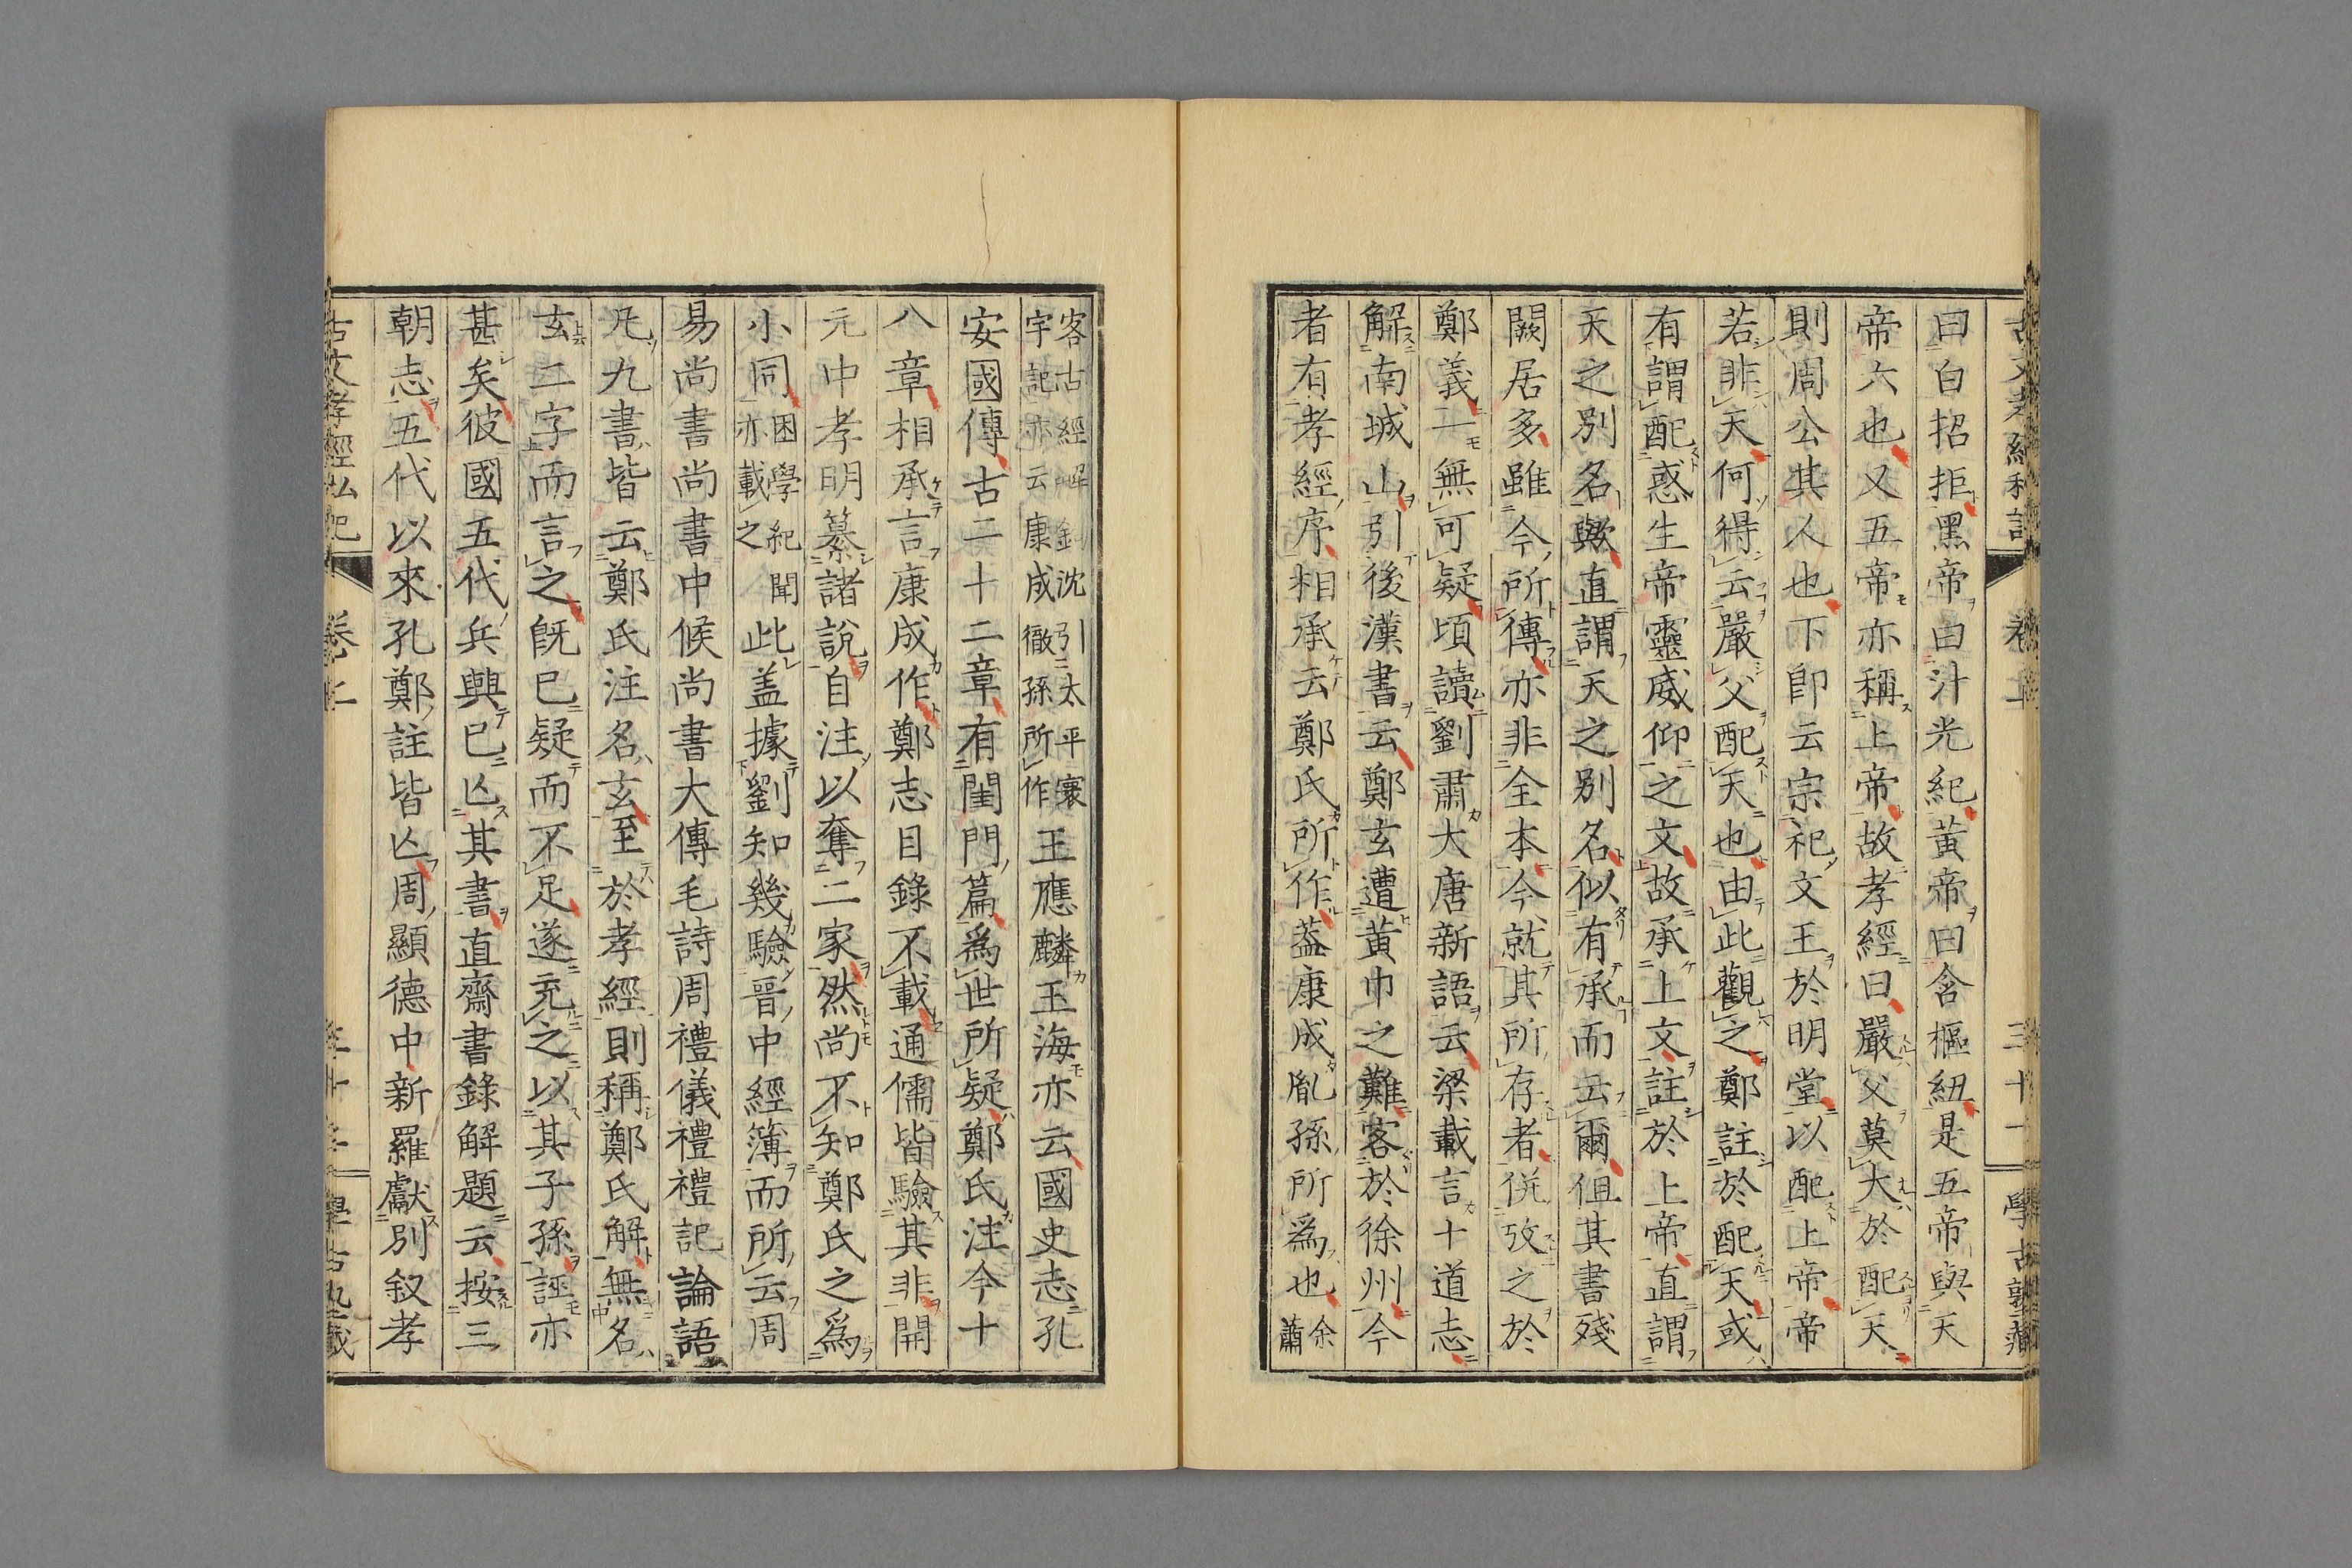 曰白招拒黑帝曰汁光紀黃帝曰含樞紐是五帝與天
帝六也又五帝亦稱上帝故孝經曰嚴父莫大於配天
則周公其人也下卽云宗祀文王於明堂以配上帝帝
若非天何得云嚴父配天也由此觀之鄭註於配天或
有謂配惑生帝靈威仰之文故承上文註於上帝直謂
天之別名歟直謂天之別名似有承而云爾但其書殘
闕居多雖今所傳亦非全本今就其所存者併攷之於
鄭義一無可疑頃讀劉肅大唐新語云梁載言十道志
解南城山引後漢書云鄭玄遭黃巾之難客於徐州今
者有孝經序相承云鄭氏所作葢康成胤孫所爲也余蕭
客古經解鉤沈引太平寰
宇記亦云康成徹孫所作
王應麟玉海亦云國史志孔
安國傳古二十二章有閨門篇爲世所疑鄭氏注今十
八章相承言康成作鄭志目錄不載通儒皆驗其非開
元中孝明纂諸說自注以奪二家然尚不知鄭氏之爲
小同困學紀聞亦載之此盖據劉知幾驗晉中經簿而所云周
易尚書尚書中候尚書大傳毛詩周禮儀禮禮記論語
凡九書皆云鄭氏注名玄至於孝經則稱鄭氏解無名
玄二字而言之旣已疑而不足遂充之以其子孫誣亦
甚矣彼國五代兵興已亾其書直齋書錄解題云按三
朝志五代以來孔鄭註皆亾周顯德中新羅獻別叙孝